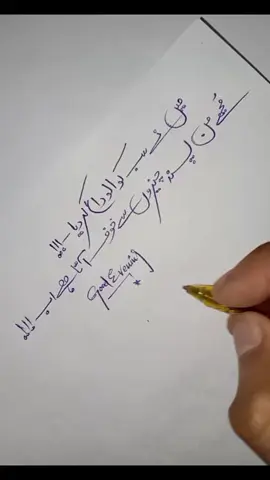 میں نے سب کو الوداع کر دیا۔۔!!!
مجھے من پسند چیزوں سے خوف آتا ہے اب !!!
Good Evening